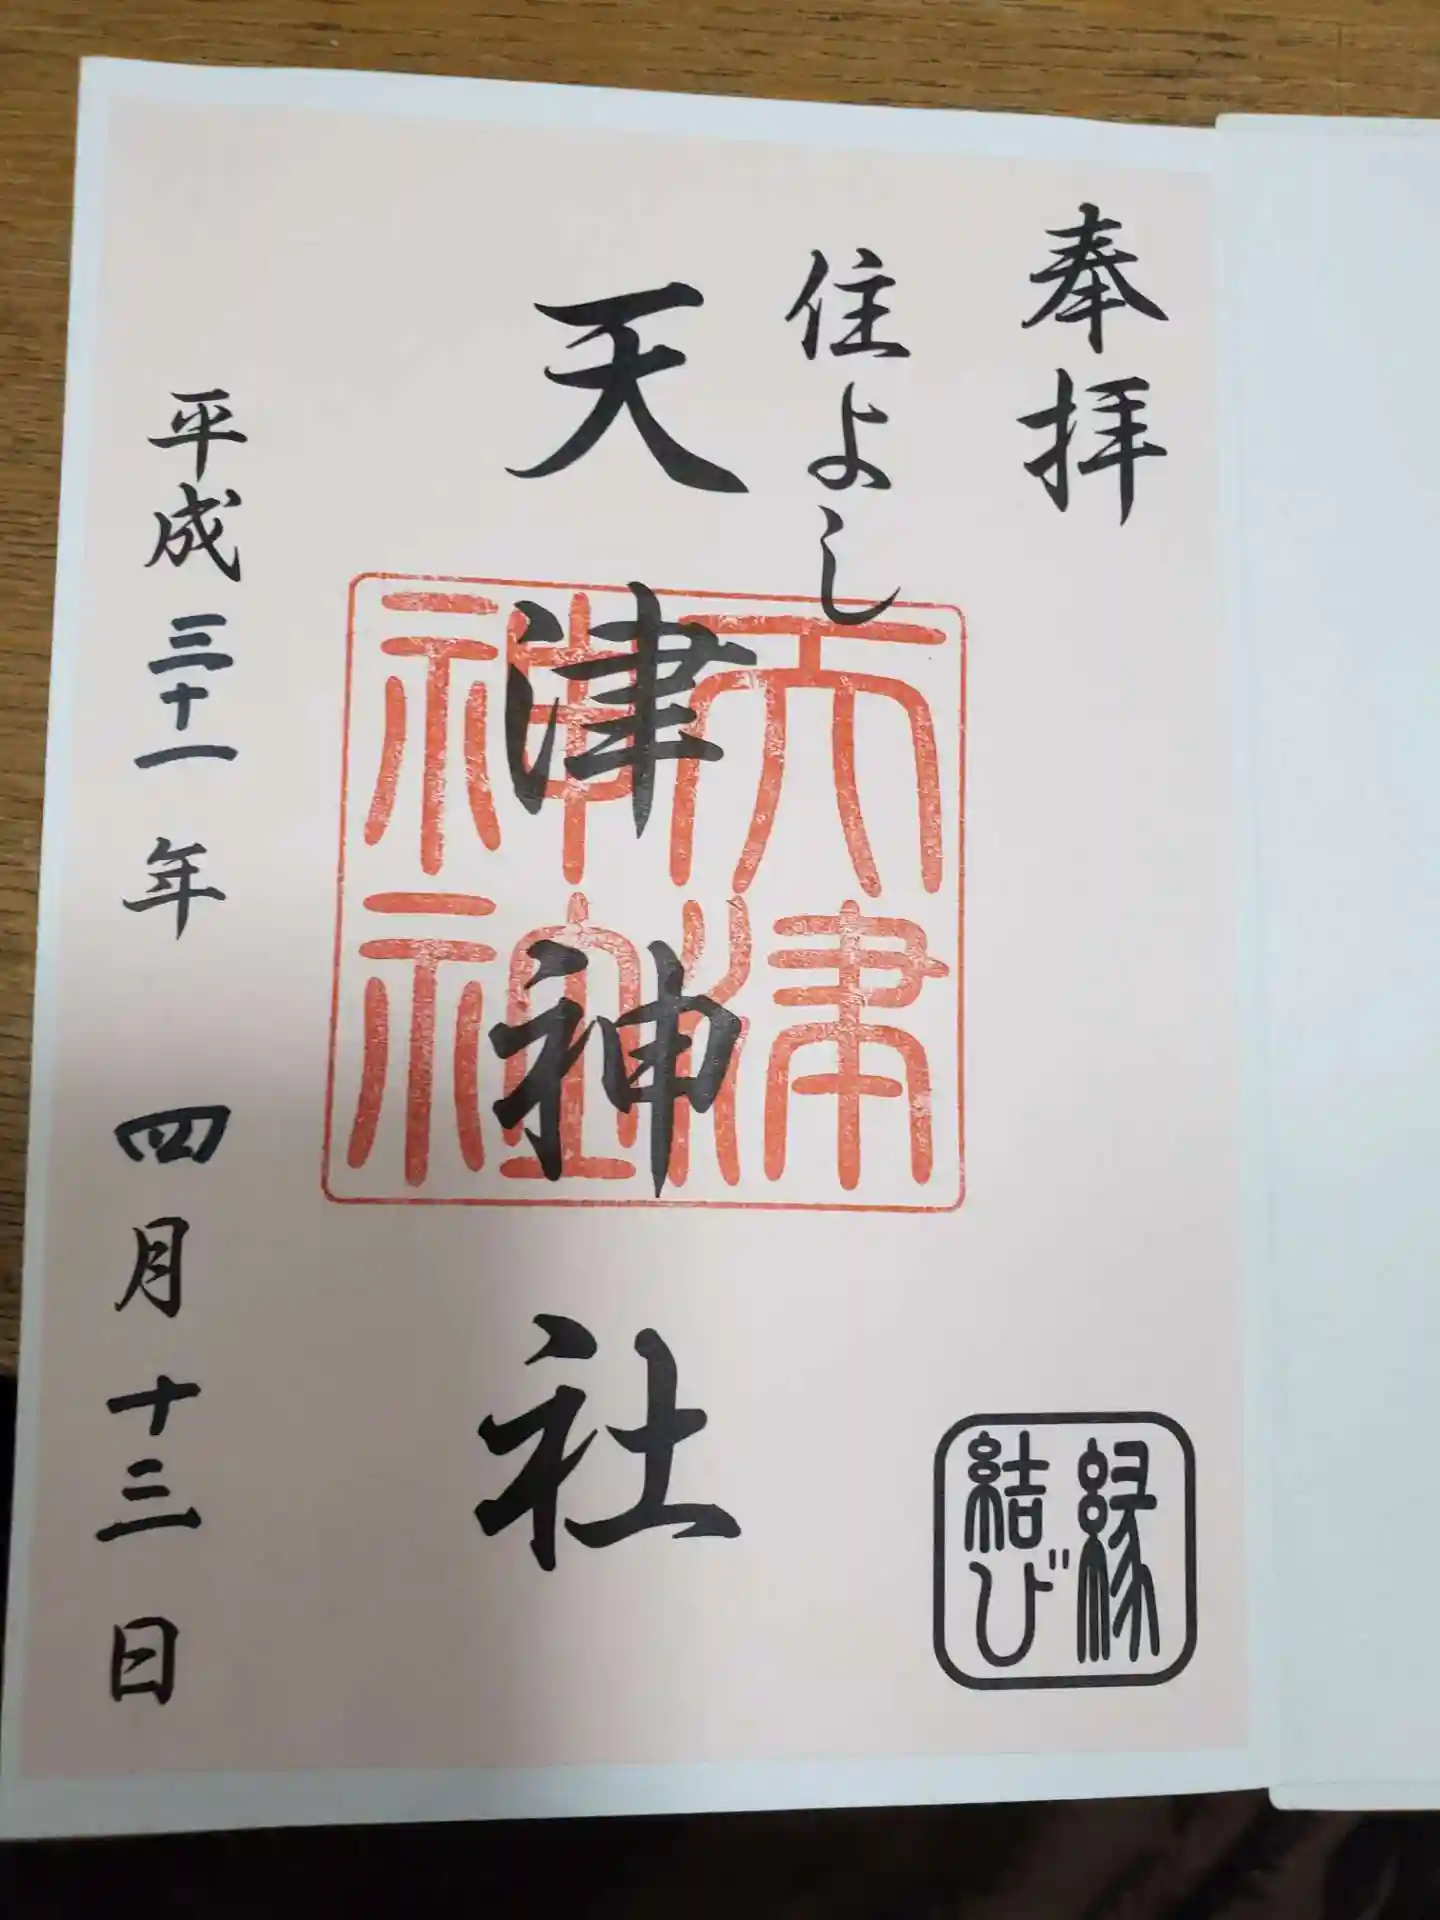 奉拝
住よし
天津神社
天津神社
平成三十一年四月十三日
縁
結び